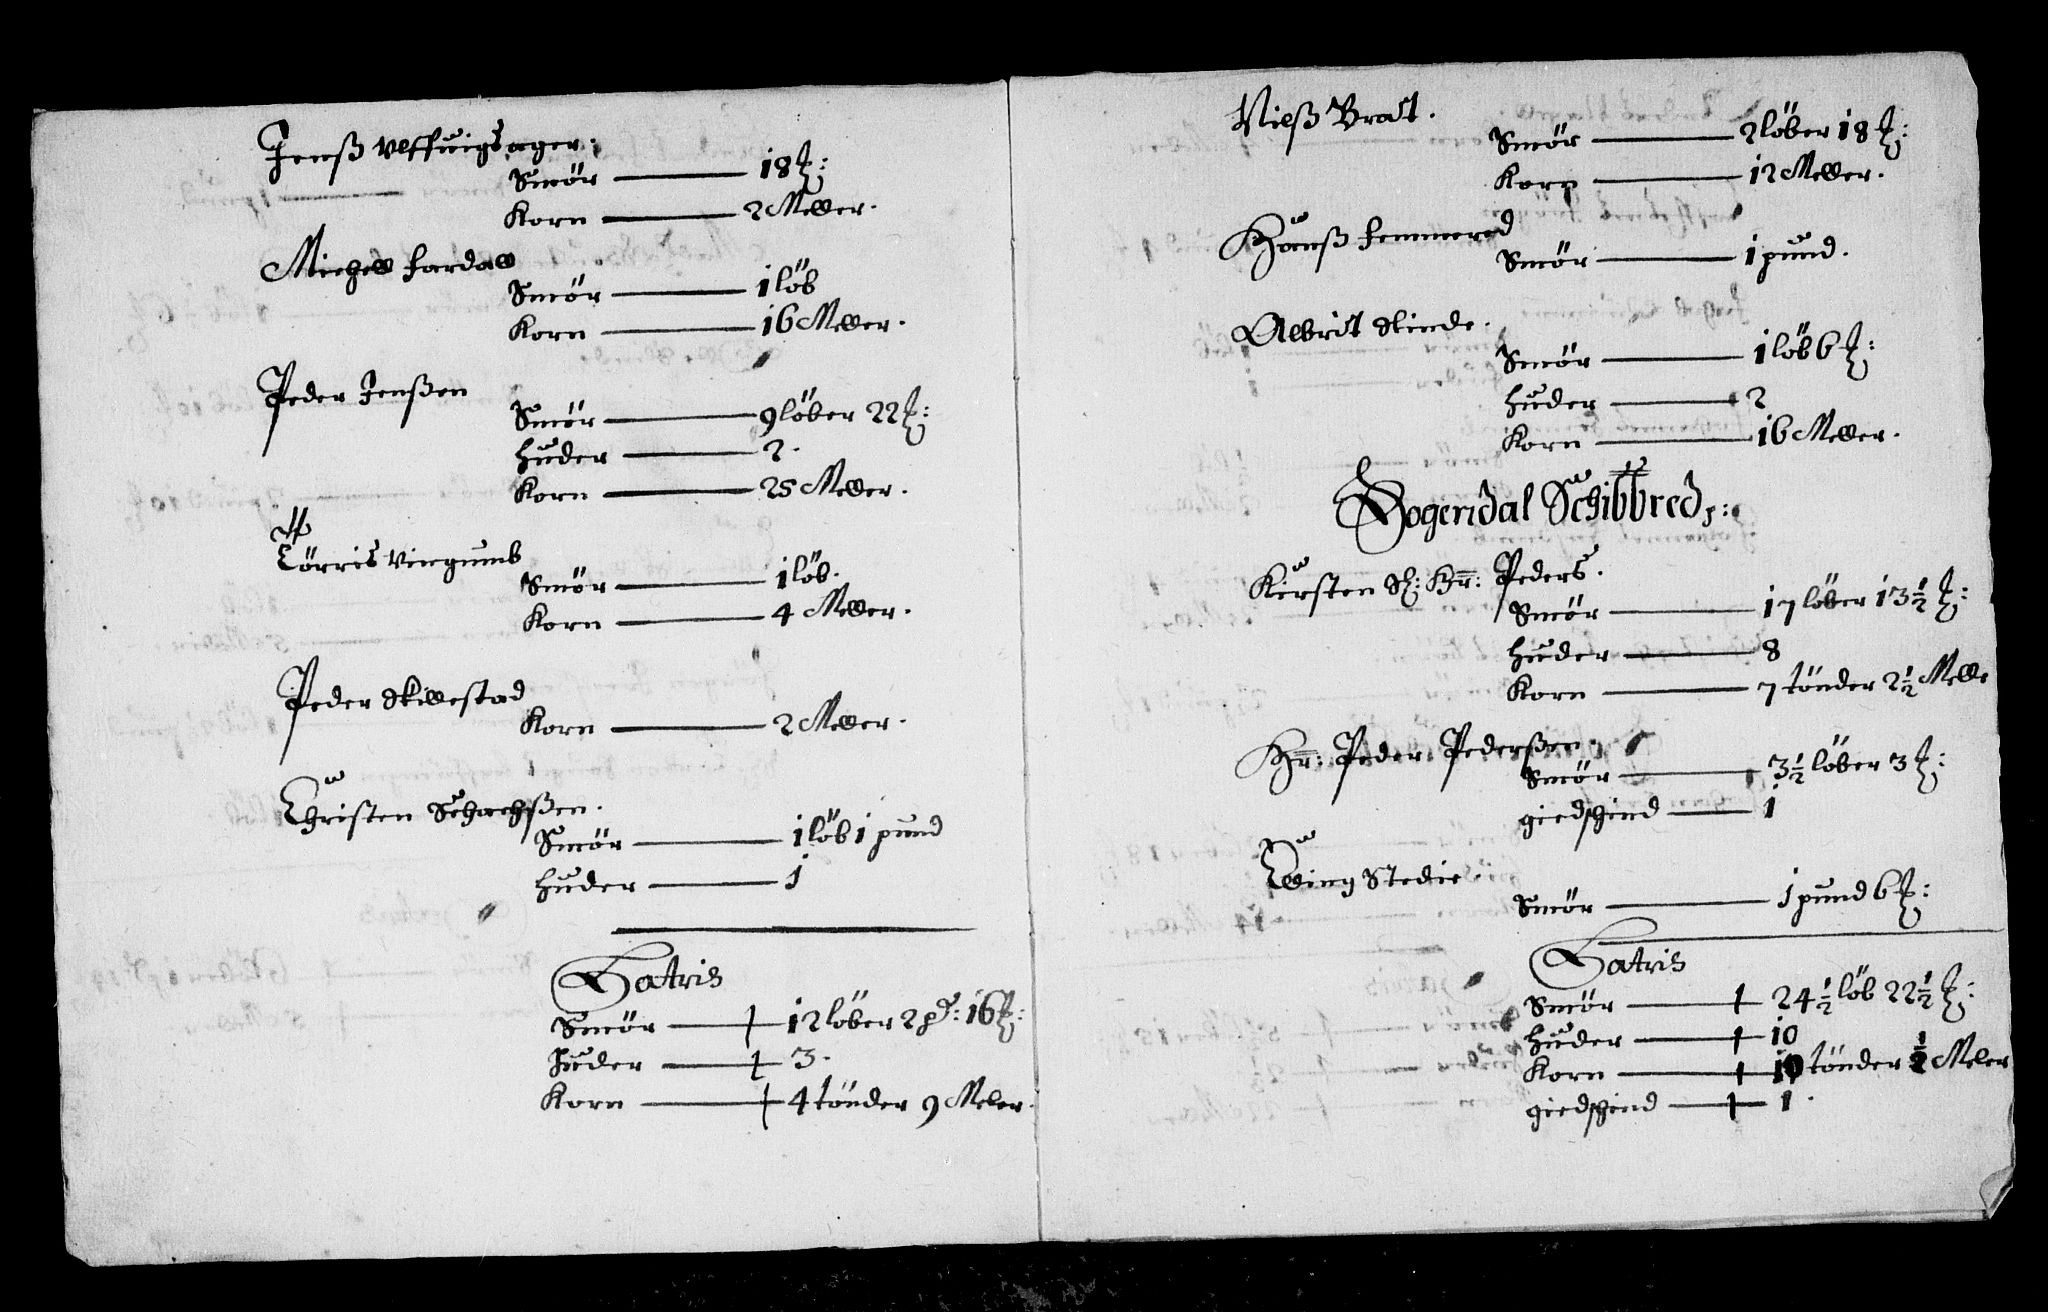 Jenß Uffuigsager:
Smör — 18 ℔:
Korn — 2 Meller.
Michell Fardall
Smör — 1 löb
Korn — 16 Meller.
Peder Jenßen
Smör — 9 löber 22 ℔:
Huder — 2.
Korn — 25 Meller.
Törris Viegumb
Smör — 1 löb.
Korn — 4 Meller.
Peder Skillestad
Korn — 2 Meller.
Christen Schachßen.
Smör — 1 löb 1 pund
Huder — 1
Latris
Smör — 12 löber 2 pd: 16 ℔:
Huder — 3.
Korn — 4 tönder 9 Meler.
Nielß Brat.
Smör — 2 löber 18 ℔:
Korn — 12 Meller.
Hanß Femmered
Smör — 1 pund.
Albrit Slinde.
Smör — 1 löb 6 ℔:
Huder — 2
Korn — 16 Meller.
Sogendal Schibbred,:
Kirsten Sl: Hr: Peders.
Smör — 17 löber 13½ ℔:
Huder — 8
Korn — 7 tönder 2½ Melle
Hr: Peder Pederßen.
Smör — 3½ löber 3 ℔:
giedschind — 1
Elling Stedie.
Smör — 1 pund 6 ℔:
Latris
Smör — 24½ löb 22½ ℔:
Huder — 10
Korn — 10 tönder ½ Meler
giedschind — 1.